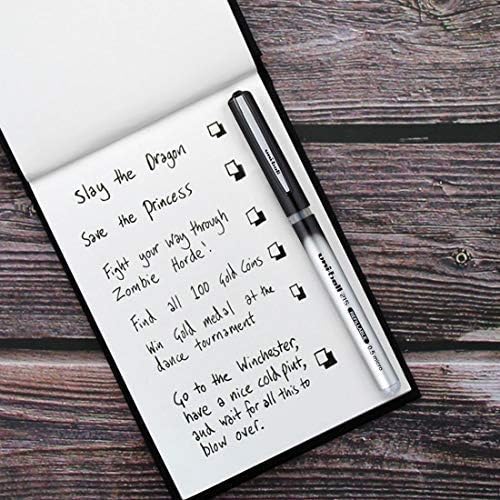 Slay the Dragon
Save the Princess
Fight your way through
Zombie Horde!
Find all 100 Gold Coins
Win Gold medal at the
dance tournament
Go to the Winchester,
have a nice cold pint,
and wait for all this to
blow over.
uni-ball
uni-ball air 0.5 micro